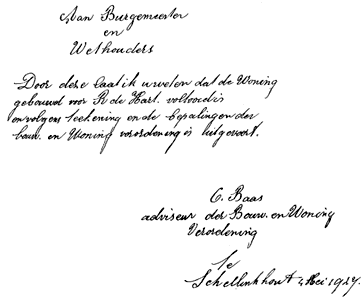 Aan Burgemeester
en
Wethouders
Door deze laat ik u weten dat de Woning
gebouwd voor R de Hart. voltooid is
en volgens teekening en de bepalingen der
bouw. en Woning verordening is uitgevoert.
C. Baas
adviseur der Bouw. en Woning
Verordening
te
Schellinkhout 4 Mei 1927.